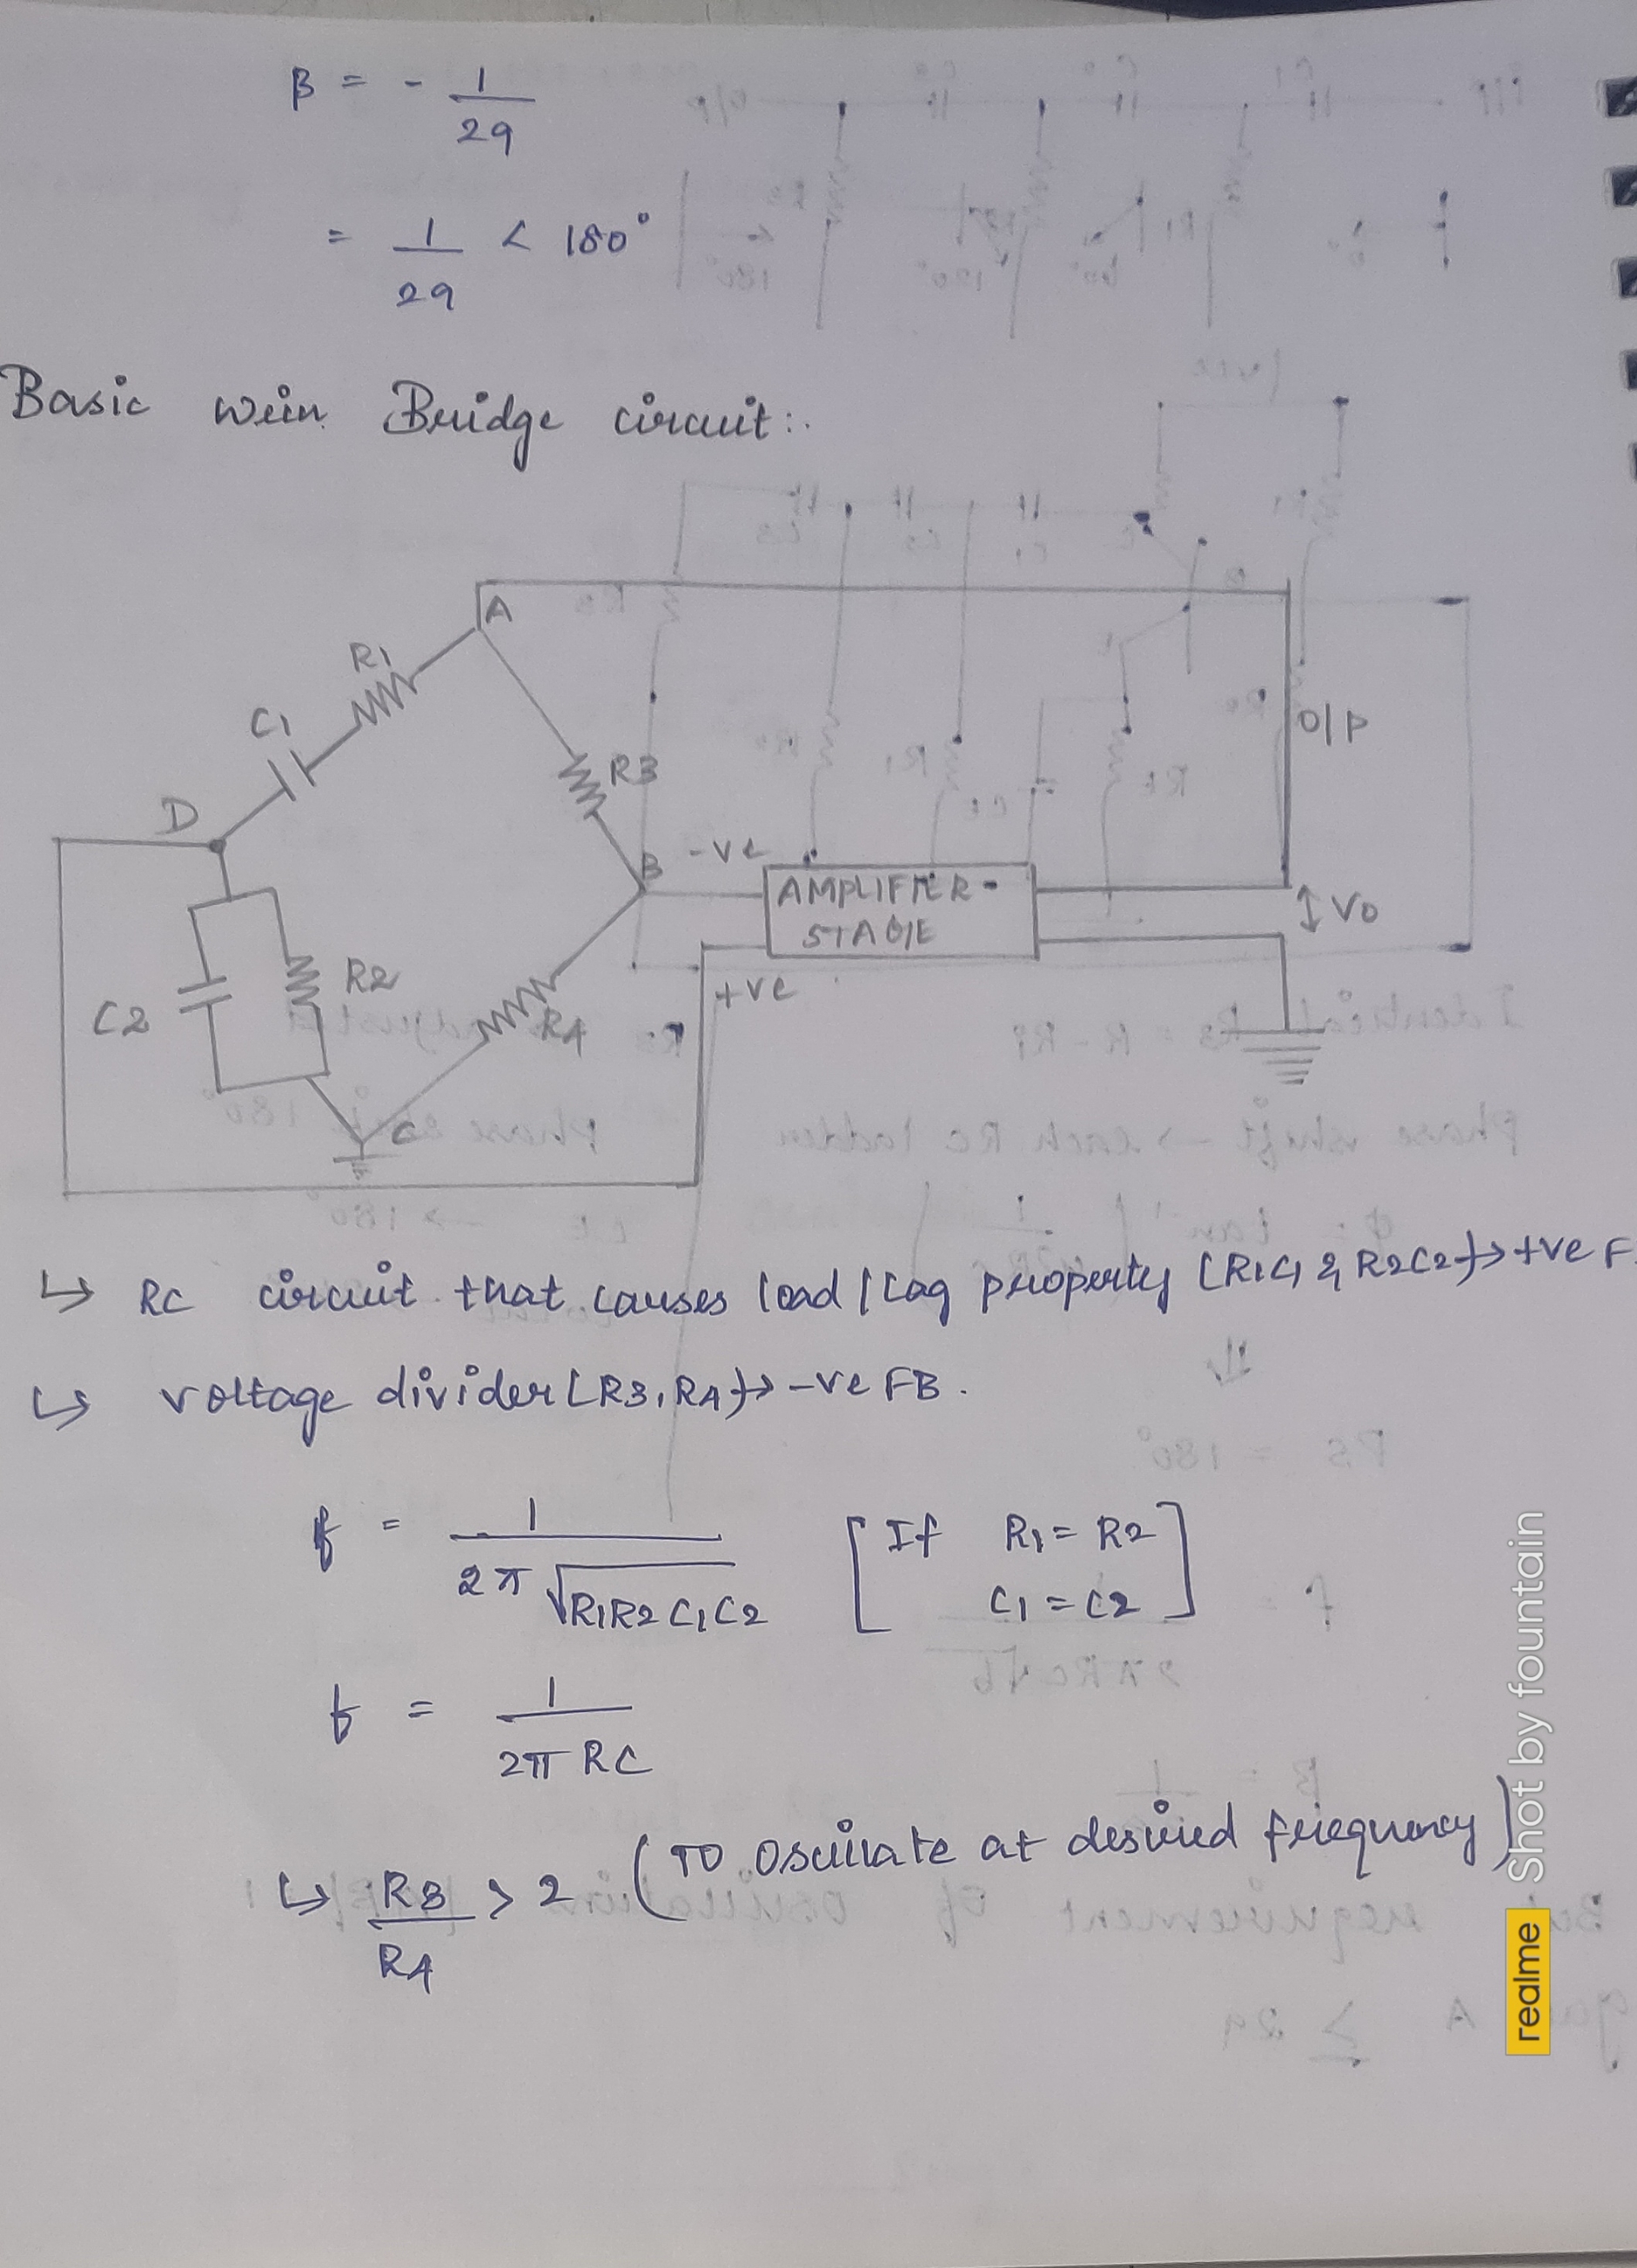 β = - 1/29
= 1/29 < 180°
Basic wein Bridge circuit:.
A
R1
C1
R3
O/P
D
B
-ve
AMPLIFIER
STAGE
Vo
+ve
R2
C2
R4
C
↳ RC circuit that causes lead/lag property [R1C1 & R2C2] → +ve F
↳ voltage divider [R3, R4] → -ve FB.
f = 1/2π √R1R2 C1C2 [If R1 = R2
C1 = C2]
f = 1/2π RC
↳ R3/R4 > 2 (TO oscillate at desired frequency)
Shot by fountain
realme